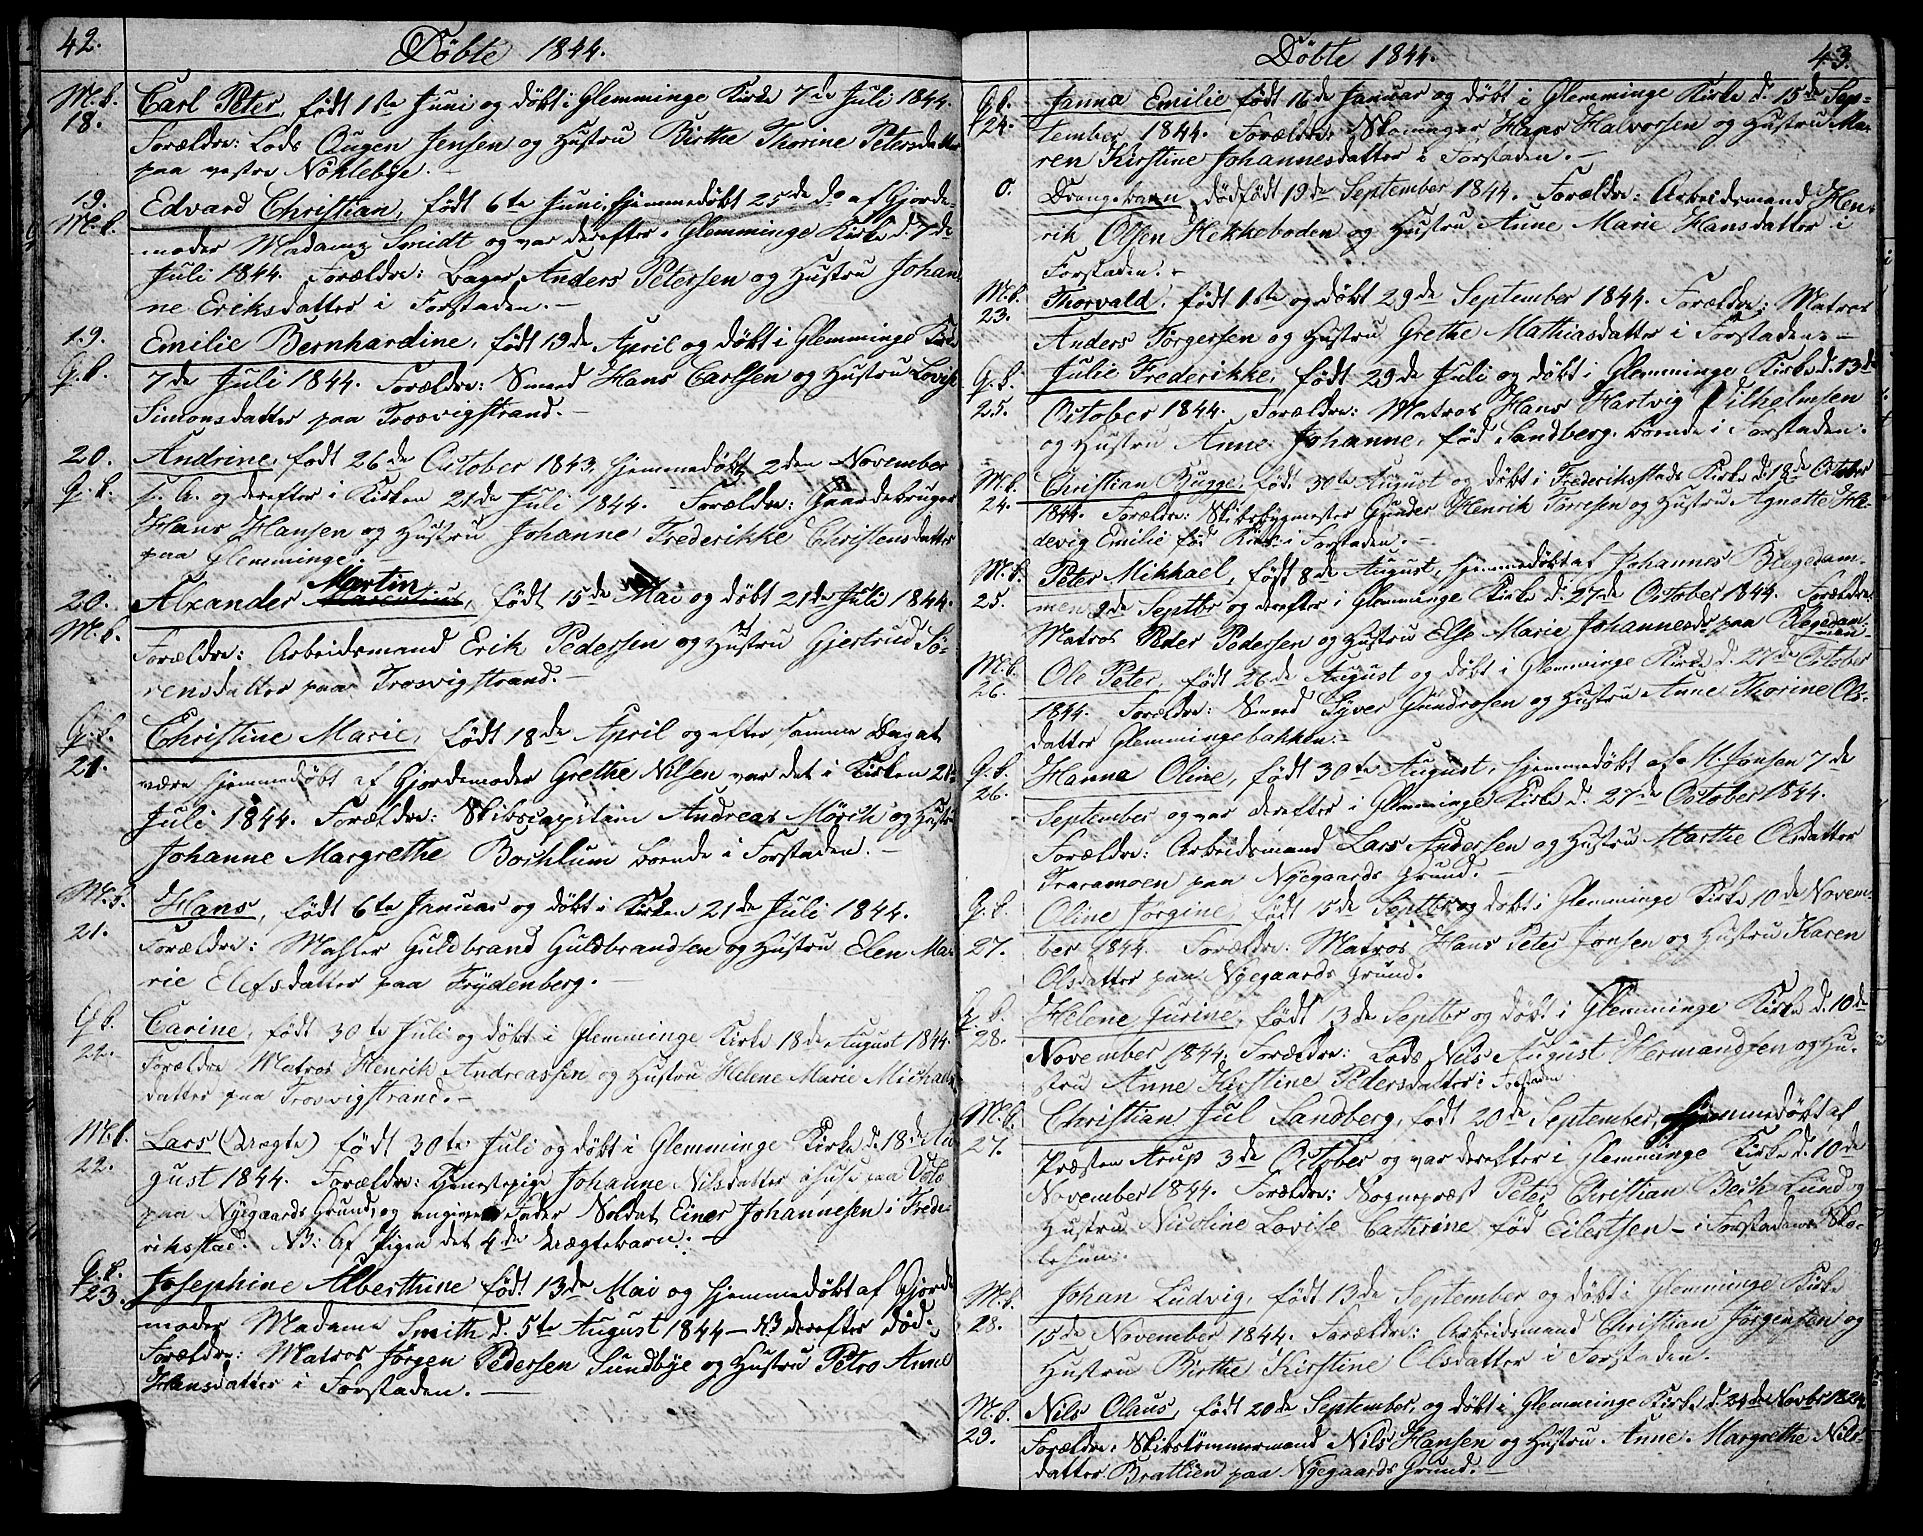 42.
Döbte 1844.
M. b. 18.
Carl Peter, född 1ste Juni og döbt i Glemminge Kirke 7de Juli 1844.
Forældre: Lods Ougen Jensen og Hustru Birthe Thorine Petersdatter
paa vestre Nöklebye.
19. M. b.
Edvard Christian, född 6te Juni, hjemmedöbt 25de do af Gjorde-
moder Madame Smidt og var derefter i Glemminge Kirke d. 7de
Juli 1844. Forældre: Bager Anders Petersen og Hustru Johan-
ne Eriksdatter i Forstaden.
19. G. b.
Emilie Bernhardine, födt 19de April og döbt i Glemminge Kirke
7de Juli 1844. Forældre: Smed Hans Carlsen og Hustru Lovise
Simonsdatter paa Trosvigstrand.
20. G. b.
Andrine, födt 26de October 1843, hjemmedöbt 2den November
s. A. og derefter i Kirken 21de Juli 1844. Forældre: Gaardebruger
Hans Hansen og Hustru Johanne Frederikke Christensdatter
paa Glemminge.
20. M. b.
Alxander Martin, födt 15de Mai og döbt 21de Juli 1844.
Forældre: Arbeidsmand Erik Pedersen og Hustru Gjertrud Sö-
rensdatter paa Trosvigstrand.
G. b. 21.
Christine Marie, födt 18de April og efter samme Dag at
være hjemmedöbt af Gjordemoder Grethe Nilsen var det i Kirken 21de
Juli 1844. Forældre: Skibscapitain Andreas Mörch og Hustru
Johanne Margrethe Bochlum boende i Forstaden.
M. b. 21.
Hans, födt 6te Januar og döbt i Kirken 21de Juli 1844.
Forældre: Mahler Guldbrand Guldbrandsen og Hustru Elen Ma-
rie Elefsdatter paa Frydenberg.
G. b. 22.
Carine, födt 30te Juli og döbt i Glemminge Kirke 18de August 1844.
Forældre Matros Henrik Andreassen og Hustru Helene Marie Michaels-
datter paa Trosvigstrand.
M. b. 22.
Lars (Uægte) födt 30te Juli og döbt i Glemminge Kirke d. 18de Au-
gust 1844. Forældre: Tjenestepige Johanne Nilsdatter
paa Nyegaards Grund, og angiven Fader Soldat Einer Johannesen i Frede-
rikstad. NB: Af Pigen det 4de Uægtebarn.
G. b. 23.
Josephine Alberthine födt 13de Mai og hjemmedöbt af Gjorde-
moder Madame Smith d. 5te August 1844 - NB derefter död.
Forældre: Matros Jörgen Pedersen Sundbye og Hustru Petro Anne
Hansdatter i Forstaden.
Döbte 1844.
43.
G. b. 24.
Janna Emilie födt 16de Januar og döbt i Glemminge Kirke d. 15de Sep-
tember 1844. Forældre: Skomager Hans Halvorsen og Hustru Ma-
ren Kirstine Johannesdatter i Forstaden.
0.
Drengebarn, dödfödt 19de September 1844. Forældre: Arbeidsmand Hen-
rik Olsen Hekkeboden og Hustru Anne Marie Hansdatter i
Forstaden.
M. b. 23.
Thorvald, födt 1ste og döbt 29de September 1844. Forældre: Matros
Anders Törgersen og Hustru Grethe Mathiasdatter i Forstaden.
G. b. 25.
Julie Frederikke, födt 29de Juli og döbt i Glemminge Kirke d. 13de
October 1844. Forældre: Matros Hans Hartvig Vilhelmsen
og Hustru Anne Johanne, föd Sandberg, boende i Forstaden.
M. b. 24.
Christian Bugge, födt 30te August og döbt i Frederiksstads Kirke d. 18de October
1844. Forældre: Skibsbygmester Gunder Henrik Torresen og Hustru Agnette He-
devig Emilie föd i Forstaden.
M. b. 25.
Peter Mikkael, födt 8de August, hjemmedöbt af Johannes Blegedam-
men 2de Septbr og derefter i Glemminge Kirke d. 27de October 1844. Forældre:
Matros Peder Pedersen og Hustru Else Marie Johannesdr paa Blegedam-
men
M. b. 26.
Ole Peter, födt 26de August og döbt i Glemminge Kirke d. 27de October
1844. Forældre: Smed Syver Gundrosen og Hustru Anne Thorine Ols-
datter Glemmingebakken.
G. b. 26.
Hanna Oline, födt 30te August, hjemmedöbt af M. Jonsen 7de
September og var derefter i Glemminge Kirke d. 27de October 1844.
Forældre: Arbeidsmand Lars Andersen og Hustru Marthe Olsdatter
Traramoen paa Nyegaards Grund.
G. b. 27.
Oline Jörgine, födt 15de Septbr og döbt i Glemminge Kirke 10de Novem-
ber 1844. Forældre: Matros Hans Peter Jonsen og Hustru Karen
Olsdatter paa Nyegaards Grund.
G. b. 28.
Helene Gurine, födt 13de Septbr og döbt i Glemminge Kirke d. 10de
November 1844. Forældre: Lods Nils August Hermandsen og Hu-
stru Anne Kirstine Pedersdatter i Forstaden
M. b. 27.
Christian Jul Sandberg, födt 20de September, hjemmedöbt af
Præsten Arup 3de October og var derefter i Glemminge Kirke d. 10de
November 1844. Forældre: Sognepræst Peter Christian Bech Lund og
Hustru Nicoline Lovise Cathrine föd Eilertsen - i Forstadens Sko-
lehuus.
M. b. 28.
Johan Ludvig, födt 13de September og döbt i Glemminge Kirke
15de November 1844. Forældre: Arbeidsmand Christian Jörgensen og
Hustru Birthe Kirstine Olsdatter i Forstaden.
M. b. 29.
Nils Olaus, födt 20de September, og döbt i Glemminge Kirke d. 24de Novbr 1824.
Forældre: Skibstömmermand Nils Hansen og Hustru Anne Margrethe Nils-
datter Bratlien paa Nyegaards Grund.